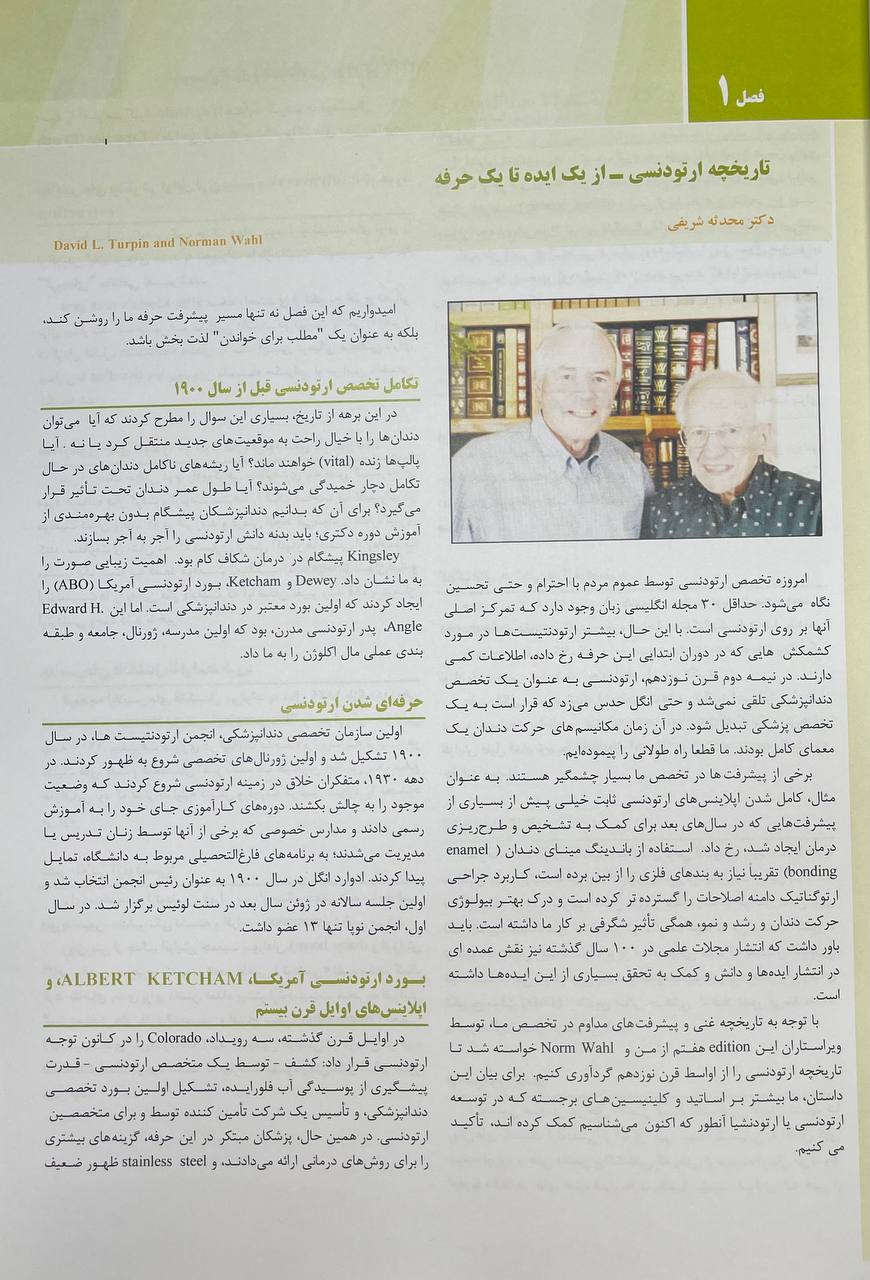 فصل ۱
تاریخچه ارتودنسی – از یک ایده تا یک حرفه
دکتر محدثه شریفی
David L. Turpin and Norman Wahl
امروزه تخصص ارتودنسی توسط عموم مردم با احترام و حتی تحسین
نگاه می‌شود. حداقل ۳۰ مجله انگلیسی زبان وجود دارد که تمرکز اصلی
آنها بر روی ارتودنسی است. با این حال، بیشتر ارتودنتیست‌ها در مورد
کشمکش هایی که در دوران ابتدایی این حرفه رخ داده، اطلاعات کمی
دارند. در نیمه دوم قرن نوزدهم، ارتودنسی به عنوان یک تخصص
دندانپزشکی تلقی نمی‌شد و حتی انگل حدس می‌زد که قرار است به یک
تخصص پزشکی تبدیل شود. در آن زمان مکانیسم‌های حرکت دندان یک
معمای کامل بودند. ما قطعا راه طولانی را پیموده‌ایم.
برخی از پیشرفت ها در تخصص ما بسیار چشمگیر هستند. به عنوان
مثال، کامل شدن اپلاینس‌های ارتودنسی ثابت خیلی پیش از بسیاری از
پیشرفت‌هایی که در سال‌های بعد برای کمک به تشخیص و طرح‌ریزی
درمان ایجاد شد، رخ داد. استفاده از باندینگ مینای دندان ( enamel
bonding) تقریباً نیاز به بندهای فلزی را از بین برده است، کاربرد جراحی
ارتوگناتیک دامنه اصلاحات را گسترده تر کرده است و درک بهتر بیولوژی
حرکت دندان و رشد و نمو، همگی تأثیر شگرفی بر کار ما داشته است. باید
باور داشت که انتشار مجلات علمی در ۱۰۰ سال گذشته نیز نقش عمده ای
در انتشار ایده‌ها و دانش و کمک به تحقق بسیاری از این ایده‌ها داشته
است.
با توجه به تاریخچه غنی و پیشرفت‌های مداوم در تخصص ما، توسط
ویراستاران این edition هفتم از من و Norm Wahl خواسته شد تا
تاریخچه ارتودنسی را از اواسط قرن نوزدهم گردآوری کنیم. برای بیان این
داستان، ما بیشتر بر اساتید و کلینیسین‌های برجسته که در توسعه
ارتودنسی یا ارتودنشیا آنطور که اکنون می‌شناسیم کمک کرده اند، تأکید
می کنیم.
امیدواریم که این فصل نه تنها مسیر پیشرفت حرفه ما را روشن کند،
بلکه به عنوان یک "مطلب برای خواندن" لذت بخش باشد.
تکامل تخصص ارتودنسی قبل از سال ۱۹۰۰
در این برهه از تاریخ، بسیاری این سوال را مطرح کردند که آیا می‌توان
دندان‌ها را با خیال راحت به موقعیت‌های جدید منتقل کرد یا نه . آیا
پالپ‌ها زنده (vital) خواهند ماند؟ آیا ریشه‌های ناکامل دندان‌های در حال
تکامل دچار خمیدگی می‌شوند؟ آیا طول عمر دندان تحت تأثیر قرار
می‌گیرد؟ برای آن که بدانیم دندانپزشکان پیشگام بدون بهره‌مندی از
آموزش دوره دکتری؛ باید بدنه دانش ارتودنسی را آجر به آجر بسازند.
Kingsley پیشگام در درمان شکاف کام بود. اهمیت زیبایی صورت را
به ما نشان داد. Dewey و Ketcham، بورد ارتودنسی آمریکا (ABO) را
ایجاد کردند که اولین بورد معتبر در دندانپزشکی است. اما این Edward H.
Angle، پدر ارتودنسی مدرن، بود که اولین مدرسه، ژورنال، جامعه و طبقه
بندی عملی مال اکلوژن را به ما داد.
حرفه‌ای شدن ارتودنسی
اولین سازمان تخصصی دندانپزشکی، انجمن ارتودنتیست ها، در سال
۱۹۰۰ تشکیل شد و اولین ژورنال‌های تخصصی شروع به ظهور کردند. در
دهه ۱۹۳۰، متفکران خلاق در زمینه ارتودنسی شروع کردند که وضعیت
موجود را به چالش بکشند. دوره‌های کارآموزی جای خود را به آموزش
رسمی دادند و مدارس خصوصی که برخی از آنها توسط زنان تدریس یا
مدیریت می‌شدند؛ به برنامه‌های فارغ‌التحصیلی مربوط به دانشگاه، تمایل
پیدا کردند. ادوارد انگل در سال ۱۹۰۰ به عنوان رئیس انجمن انتخاب شد و
اولین جلسه سالانه در ژوئن سال بعد در سنت لوئیس برگزار شد. در سال
اول، انجمن نوپا تنها ۱۳ عضو داشت.
بورد ارتودنسی آمریکا، ALBERT KETCHAM، و
اپلاینس‌های اوایل قرن بیستم
در اوایل قرن گذشته، سه رویداد، Colorado را در کانون توجه
ارتودنسی قرار داد: کشف - توسط یک متخصص ارتودنسی - قدرت
پیشگیری از پوسیدگی آب فلورایده، تشکیل اولین بورد تخصصی
دندانپزشکی، و تأسیس یک شرکت تأمین کننده توسط و برای متخصصین
ارتودنسی. در همین حال، پزشکان مبتکر در این حرفه، گزینه‌های بیشتری
را برای روش‌های درمانی ارائه می‌دادند، و stainless steel ظهور ضعیف